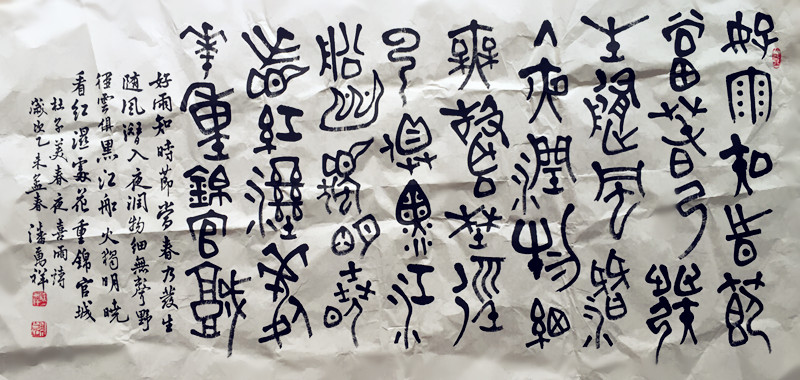 好雨知時節
當春乃發
生隨風潛
入夜潤物細
無聲野徑
雲俱黑江
船火獨明曉
看紅濕處
花重錦官城
好雨知時節當春乃發生
随風潛入夜潤物細無聲野
徑雲俱黑江船火獨明曉
看紅濕處花重錦官城
杜子美春夜喜雨詩
歲次乙未孟春潘萬祥